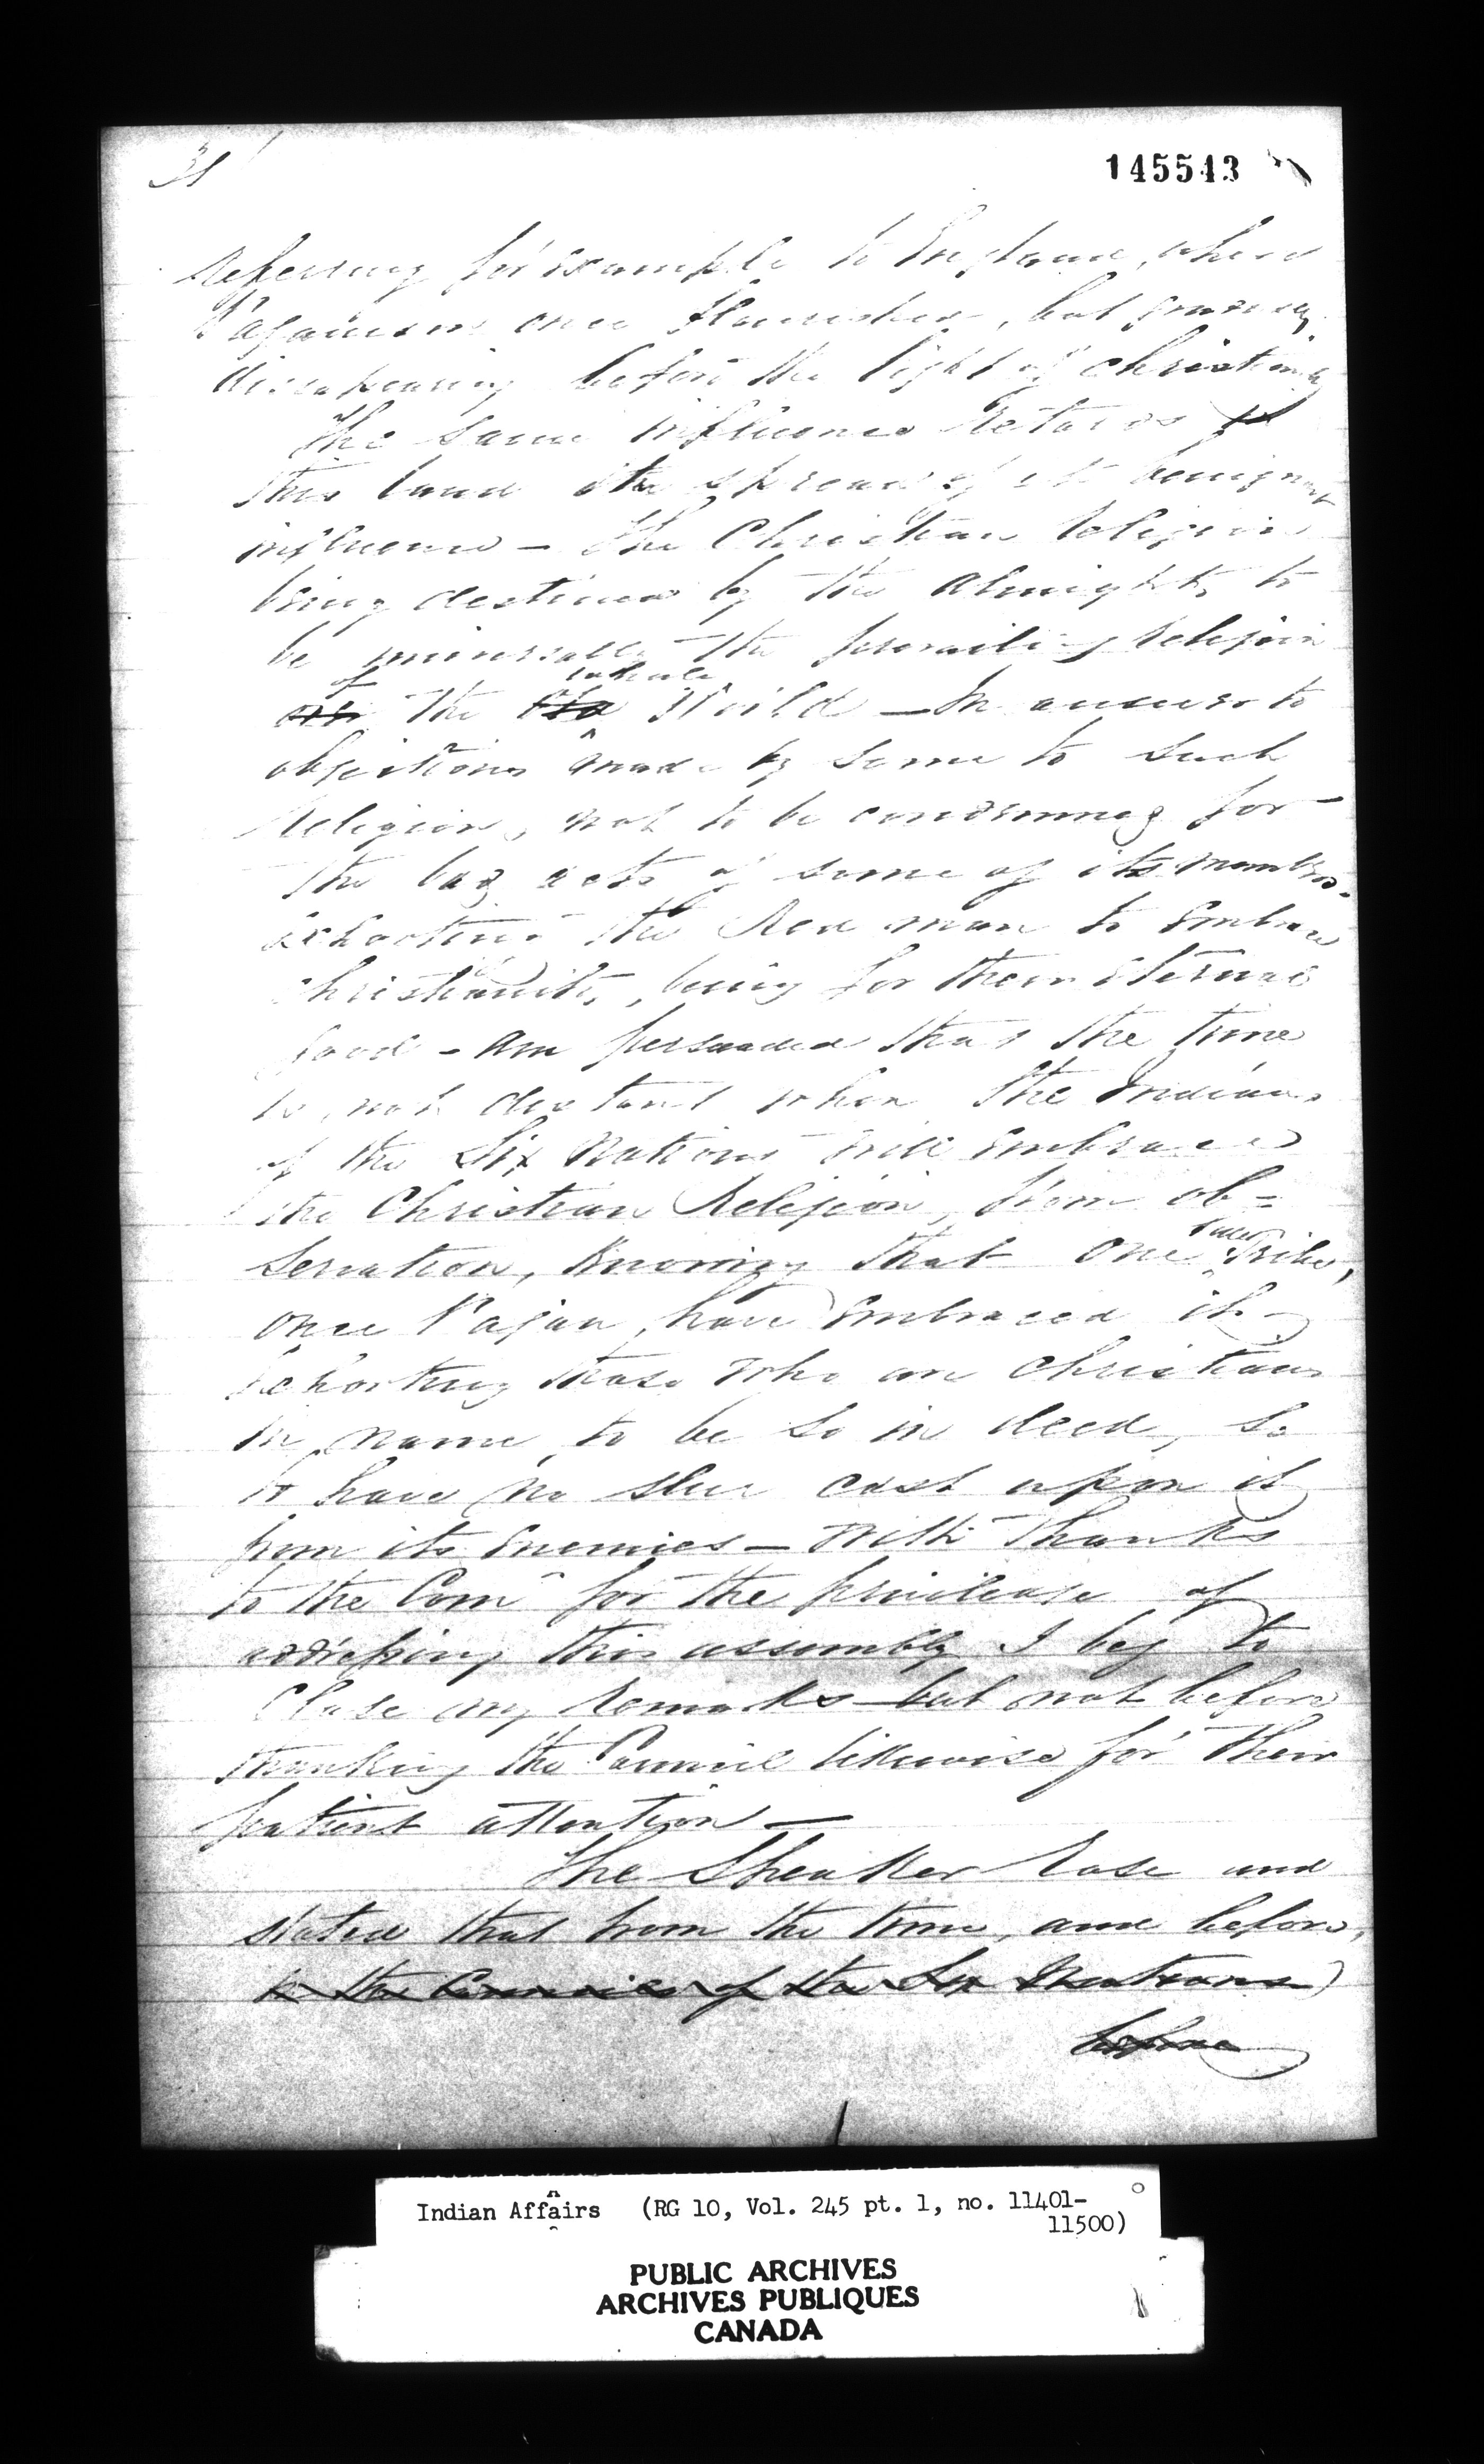 31
145543
referring for example to England, where
Paganism once flourished, but
disapearing before the light of Christianity
The same influence retards
this land the spread of its benignant
influence – the Christian Religion
being destined by the Almighty to
be universally the prevailing religion
of whole
the World – In answer to
objections made by some to such
Religion, not to be condemned for
the bad acts of some of its members.
exhorting the Red man to embrace
Christianity, being for their eternal
good – am persuaded that the time
is not distant when the Indians
of the Six Nations will embrace
the Christian Religion, from ob=
servation, knowing that one Tribe,
once Pagan, have embraced it –
exhorting those who are Christians
in name to be so in deed, so
to have no slur cast upon it
from its enemies – With thanks
to the Com for the privilege of
addressing this assembly I beg to
close my remarks – but not before
thanking the Council likewise for their
patient attention –
The Speaker rose and
stated that from the time, and before,
to the Council of the Six Nations
before
Indian Affairs (RG 10, Vol. 245 pt. 1, no. 11401-
11500)
PUBLIC ARCHIVES
ARCHIVES PUBLIQUES
CANADA